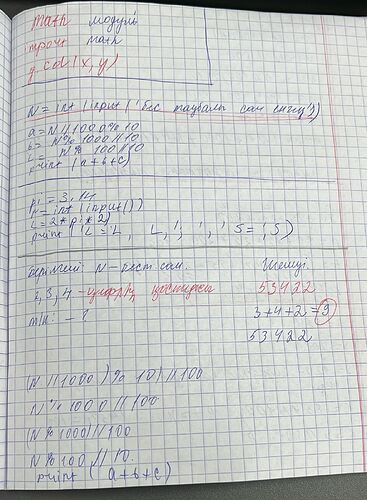 math модуль
импорт math
y.cd(x,y)
N = int (input ('бес таңбалы сан енгіз'))
a = N // 1000 % 10
b = N % 1000 // 10
c = N % 100 // 10
print (a+b+c)
pi = 3,14
r = int (input())
L = 2 * pi * 2)
print ('L = 'L, L, ';', ' S = ', S)
Берілгені N - бест сан. Шешуі.
2, 3, 4 - цифрл қостырен 53422
т/к: - ? 3+4+2=9
53422
(N // 1000) % 10) // 100
N % 1000 // 100
(N % 1000) // 100
N % 100 // 10.
print ( a+b+c)